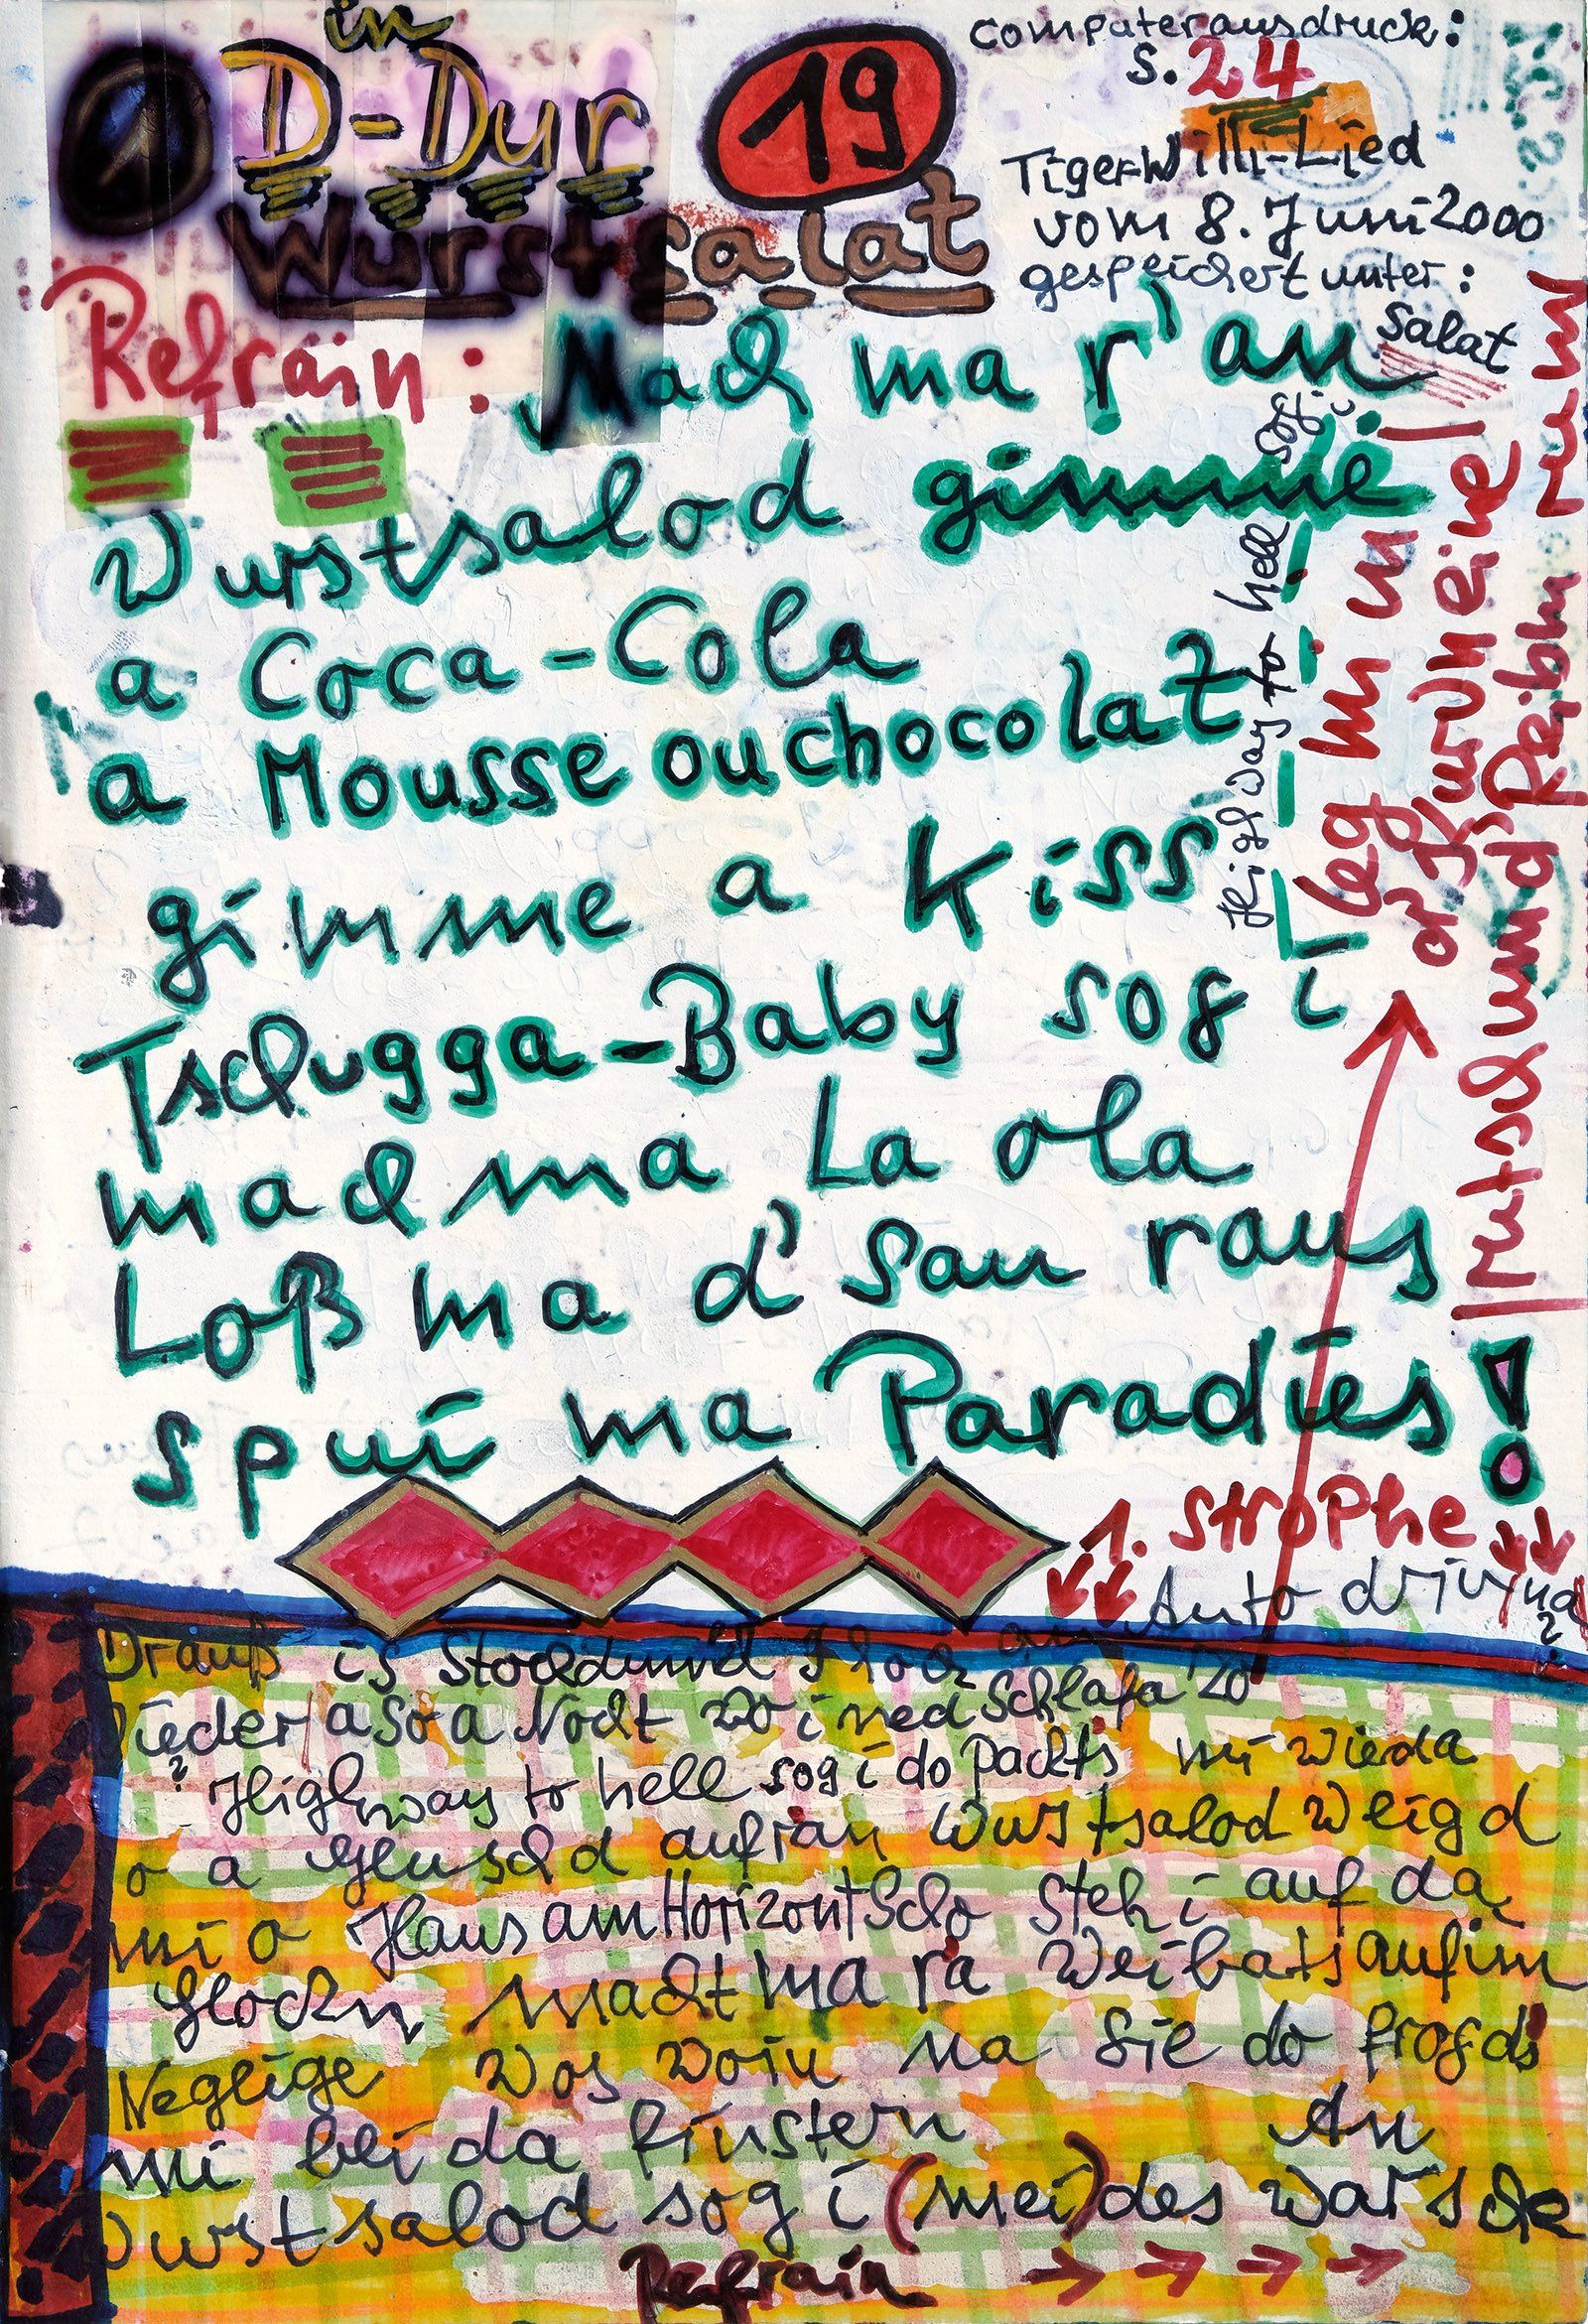 in
1 D-Dur
19
Wurstsalat
Computerausdruck:
S. 24
TigerWilli-Lied
vom 8. Juni 2000
gespeichert unter:
Salat
Refrain: Mach ma r'an
Wurstsalod gimme
a Coca-Cola
a Mousse ou chocolat
gimme a Kiss
Tschugga-Baby sog i
mach ma La ola
Loß ma d' Sau raus
spui ma Paradies!
Highway to hell sog i
leg mi in
d' Kurvn eine
rutsch und Reibn rum
1. Strophe
Auto
Drauß is Stockdunkl
wieder a so a Nocht wo i ned Schlafa ko
Highway to hell sog i do packts mi wieda
o a Gluschd auf ran Wurstsalod Weigd
mi o Haus am Horizont Scho steh i auf da
Glockn macht ma ra Weibats auf im
Neglige Wos woin na Sie do frogds
mi bei da finstern An
Wurstsalod sog i (mei) des war sche
Refrain